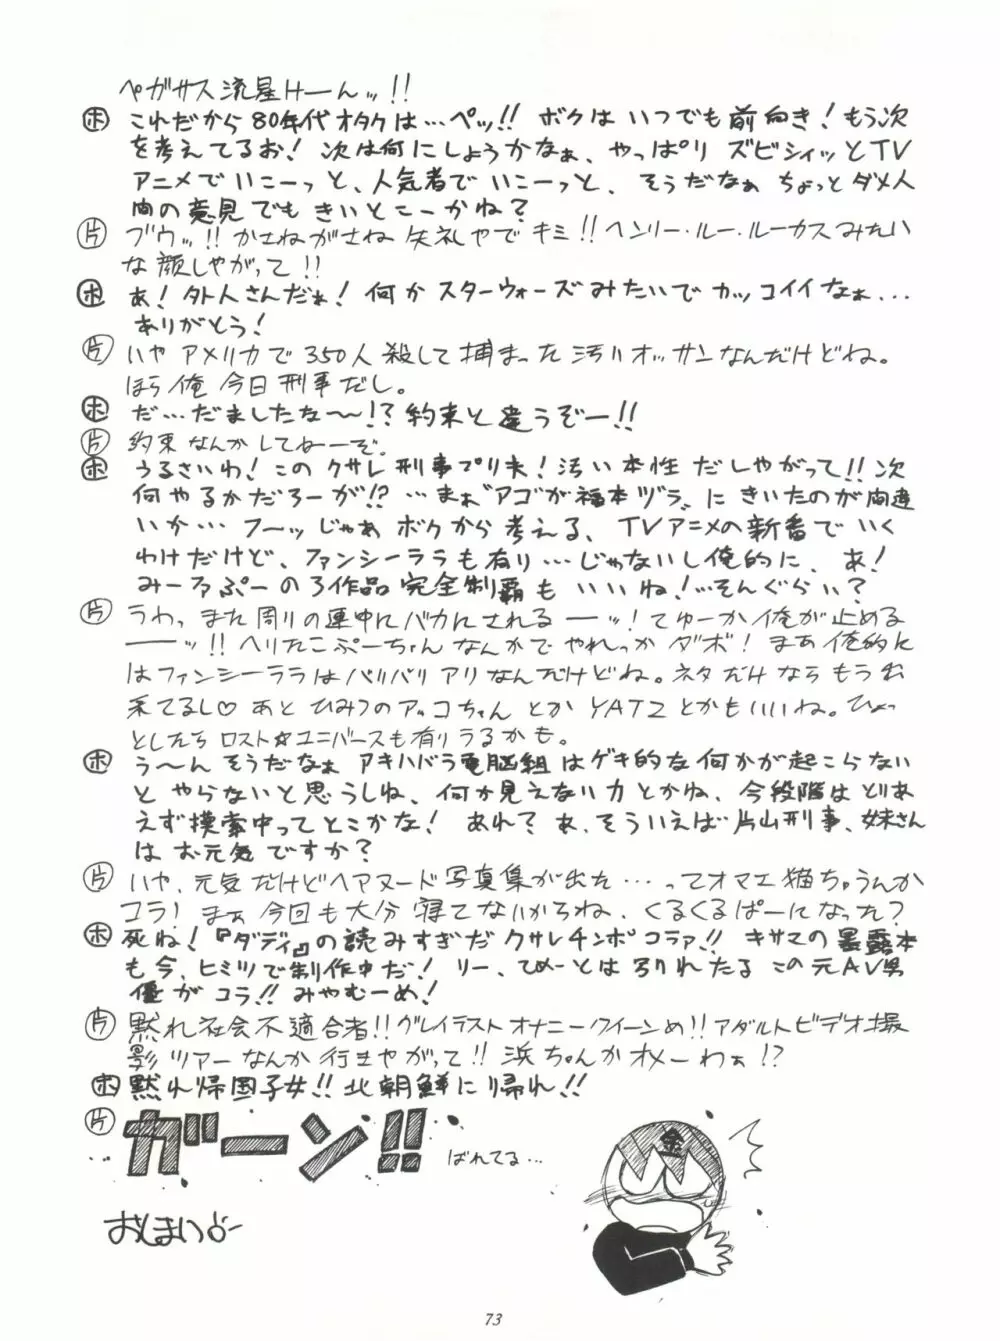 ペガサス流星けーんッ!!
ホ これだから80年代オタクは…ペッ!! ボクはいつでも前向き!もう次
を考えてるお! 次は何にしようかなぁ、やっぱり ズビシィッとTV
アニメでいこーっと、人気者でいこーっと、そうだなぁ ちょっとダメ人
間の意見でもきいとこーかね?
片 ブウッ!! かさねがさね失礼やでキミ!! ヘンリー・ルー・ルーカスみたい
な顔しやがって!!
ホ あ!外人さんだぁ! 何かスターウォーズみたいでカッコイイなぁ...
ありがとう!
片 いやアメリカで350人殺して捕まった汚いオッサンなんだけどね。
ほら俺今日刑事だし。
ホ だ…だましたな〜!?約束と違うぞー!!
片 約束なんかしてねーぞ。
ホ うるさいわ!このクサレ刑事プリ夫!汚い本性だしやがって!! 次
何やるかだろーが!? …まぁ〝アゴが福本ヅラ〟にきいたのが間違
いか… フ〜ッじゃあボクから考える、TVアニメの新番でいく
わけだけど、ファンシーララも有り…じゃないし俺的に、あ!
みーるぷーの3作品完全制覇もいいね!…そんぐらい?
片 うわっまた周りの連中にバカにされるーーッ!てゆーか俺が止める
ーーッ!! ヘリたこぷーちゃんなんかでやれっかダボ! まあ俺的に
はファンシーララはバリバリアリなんだけどね。ネタだけならもう出
来てるし♡ あと ひみつのアッコちゃん とか YAT2とかもいいね。ひょっ
としたら ロスト☆ユニバースも有りうるかも。
ホ う〜んそうだなぁ アキハバラ電脳組はゲキ的な何かが起こらない
とやらないと思うしね、何か見えない力とかね、今段階はとりあ
えず模索中ってとこかな! あれ? あ、そういえば片山刑事、妹さん
はお元気ですか?
片 いや、元気だけどヘアヌード写真集が出た…ってオマエ猫ちゃうんか
コラ! まぁ今回も大分寝てないからね、くるくるぱーになった?
ホ 死ね!『ダディ』の読みすぎだクサレチンポコラァ!! キサマの暴露本
も今、ヒミツで制作中だ! リー、てめーとは引れたる この元AV男
優がコラ!! みやむーめ!
片 黙れ社会不適合者!! グレイテストオナニークイーンめ!! アダルトビデオ撮
影ツアーなんか行きやがって!! 浜ちゃんかオメーわぁ!?
ホ 黙れ帰国子女!! 北朝鮮に帰れ!!
片 ガーン!! ばれてる…
金
おしまい
73